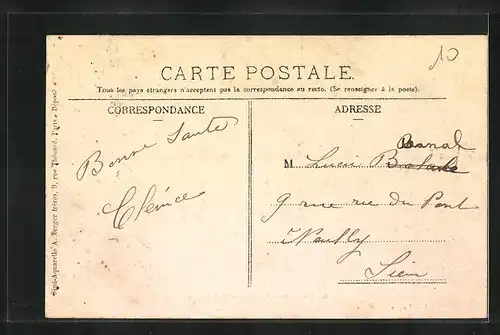 10
CARTE POSTALE.
Tous les pays étrangers n'acceptent pas la correspondance au recto. (Se renseigner à la poste).
CORRESPONDANCE
ADRESSE
Bonne Santé
Clémice
Banal
M Lucie
9 rue du Pont
Neuilly
Sein
Sigd-Appareils A. Bergue frères, 9, rue Thénard, Paris - Déposé